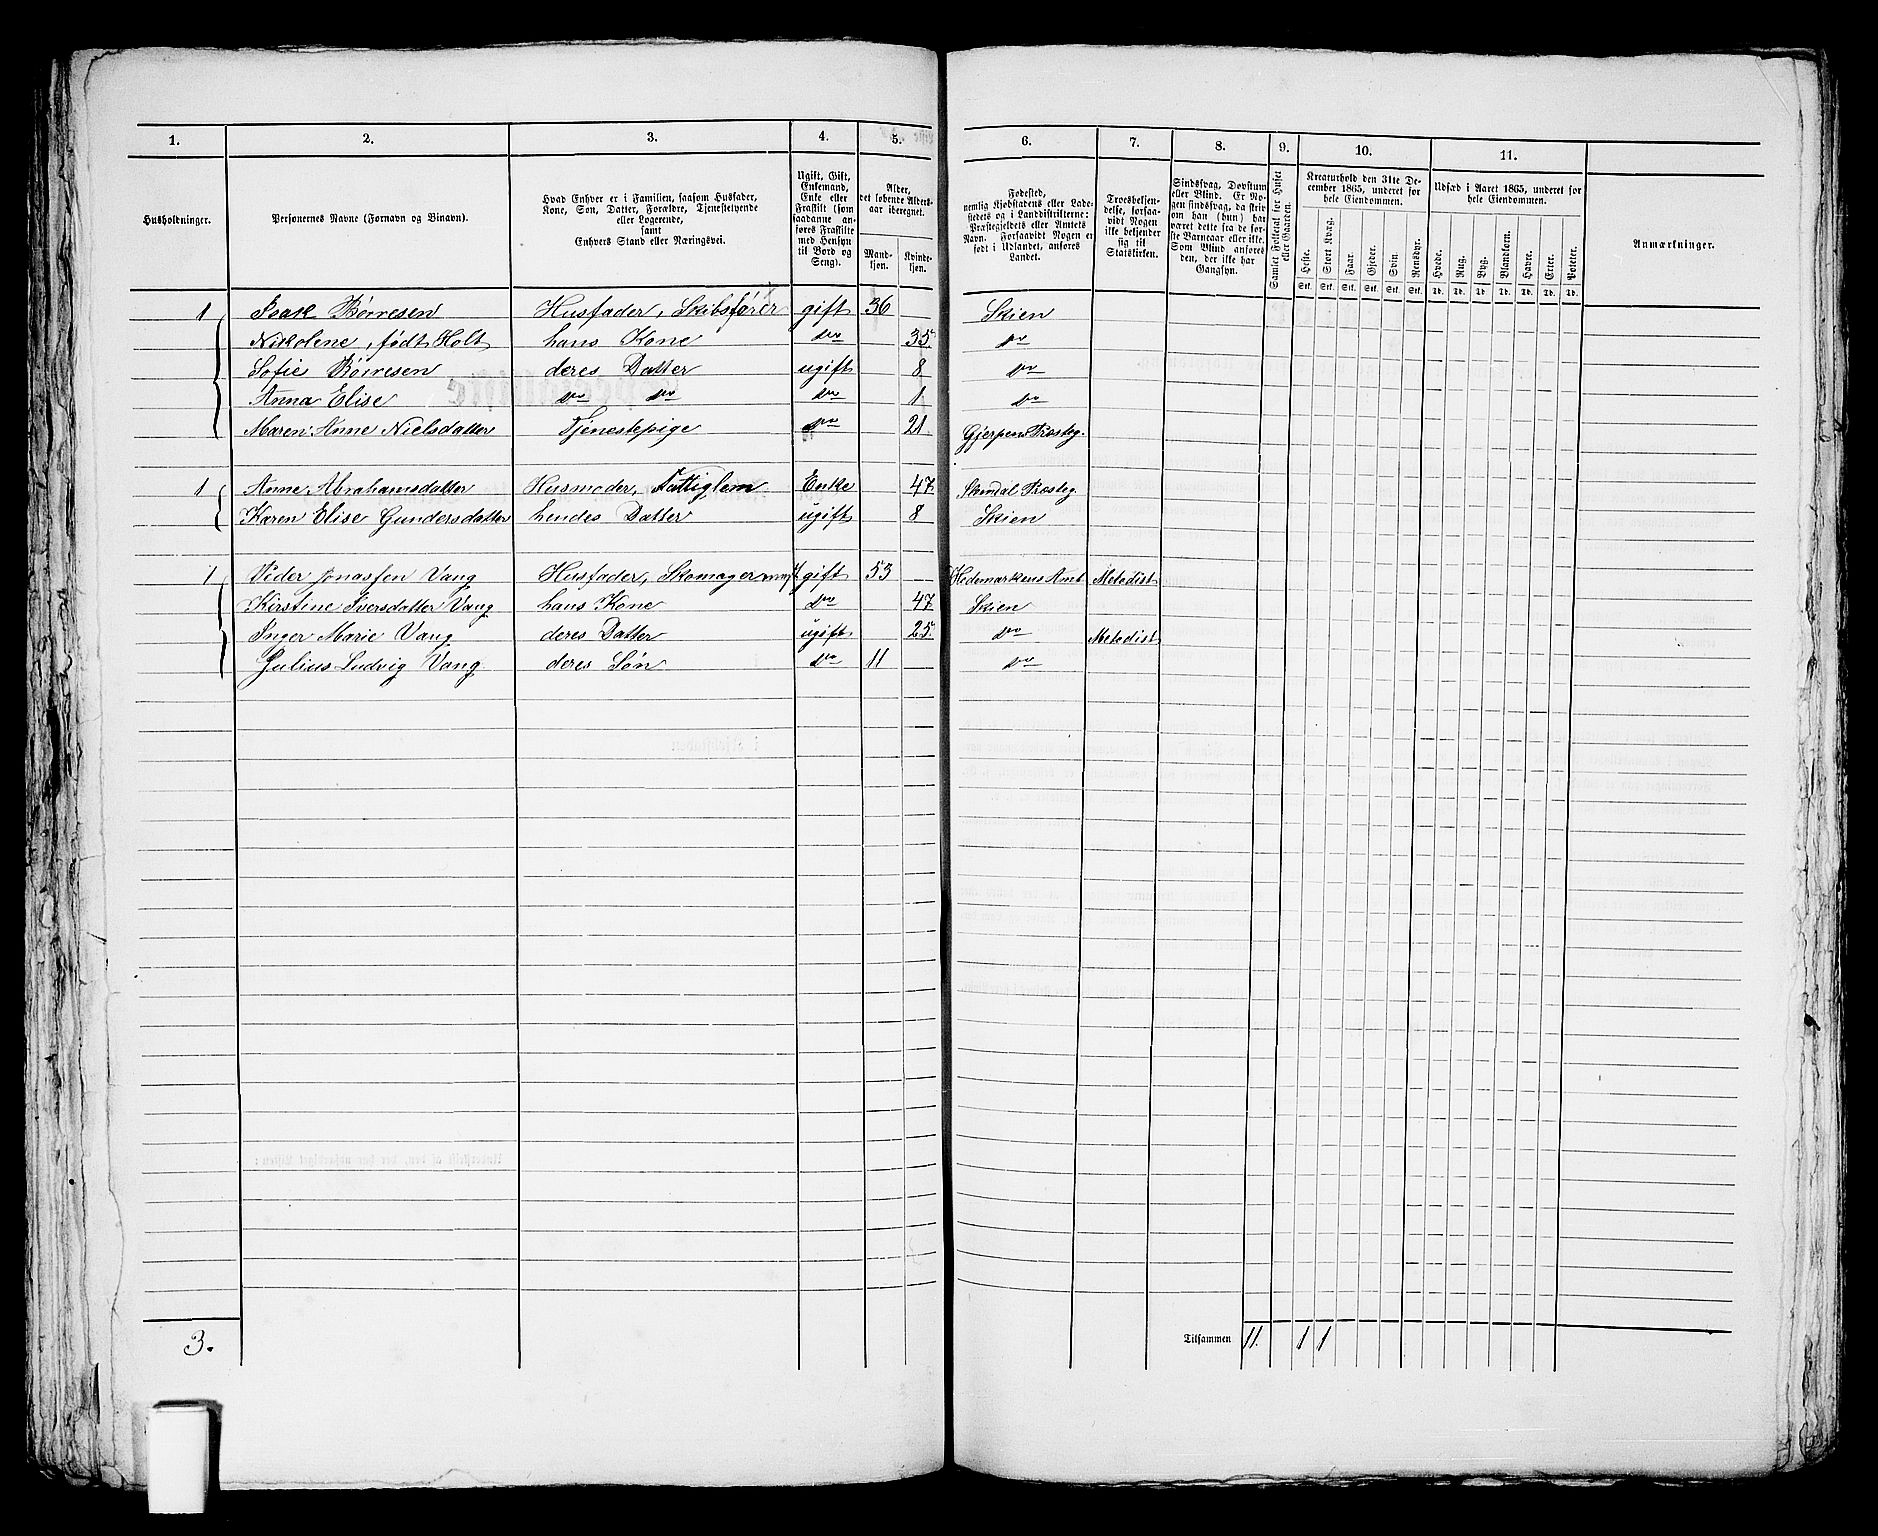 1. 2. 3. 4. 5. 6. 7. 8. 9. 10. 11.
Husholdninger.
Personernes Navne (Fornavn og Binavn).
Hvad Enhver er i Familien, saasom Husfader,
Kone, Søn, Datter, Forældre, Tjenestetyende
eller Logerende,
samt
Enhvers Stand eller Næringsvei.
Ugift, Gift,
Enkemand,
Enke eller
Fraskilt (som
saadanne anføres Fraskilte
med Hensyn
til Bord og
Seng).
Alder,
det løbende Aldersaar iberegnet.
Mandkjøn.
Kvindekjøn.
Fødested,
nemlig Kjøbstadens eller Ladestedets og i Landdistrikterne:
Præstegjeldets eller Annexets
Navn. Forsaavidt Nogen er
født i Udlandet, anføres
Landet.
Troesbekjendelse, forsaavidt Nogen
ikke bekjender
sig til
Statskirken.
Sindssvag, Døvstum
eller Blind. Er Nogen sindssvag, da skrives om han (hun) har
været dette fra de første Barneaar eller ikke.
Som Blind anføres
den, der ikke har
Gangsyn.
Samlet Folketal for Huset
eller Gaarden.
Kreaturhold den 31te December 1865, underet for
hele Eiendommen.
Heste. Stort Kvæg. Faar. Gjeder. Svin. Rensdyr.
Stk. Stk. Stk. Stk. Stk. Stk.
Udsæd i Aaret 1865, underet for
hele Eiendommen.
Hvede. Rug. Byg. Blandkorn. Havre. Erter. Poteter.
Td. Td. Td. Td. Td. Td. Td.
Anmærkninger.
1 Isaak Børresen Husfader, Skibsfører gift 36 Skien
Nikolene, født Holt hans Kone do 35 do
Sofie Børresen deres Datter ugift 8 do
Anna Elise do do do 1 do
Maren Anne Nielsdatter Tjenestepige do 21 Gjerpens Præsteg.
1 Anne Abrahamsdatter Husmoder, Fattiglem Enke 47 Præsteg.
Karen Elise Gundersdatter hendes Datter ugift 8 Skien
1 Peder Jonassen Vang Husfader, Skomager gift 53 Hedemarkens Amt Metodist
Kirstine Iversdatter Vang hans Kone do 47 Skien
Inger Marie Vang deres Datter ugift 25 do Metodist
Julius Ludvig Vang deres Søn do 11 do
3.
Tilsammen 11. 1 1